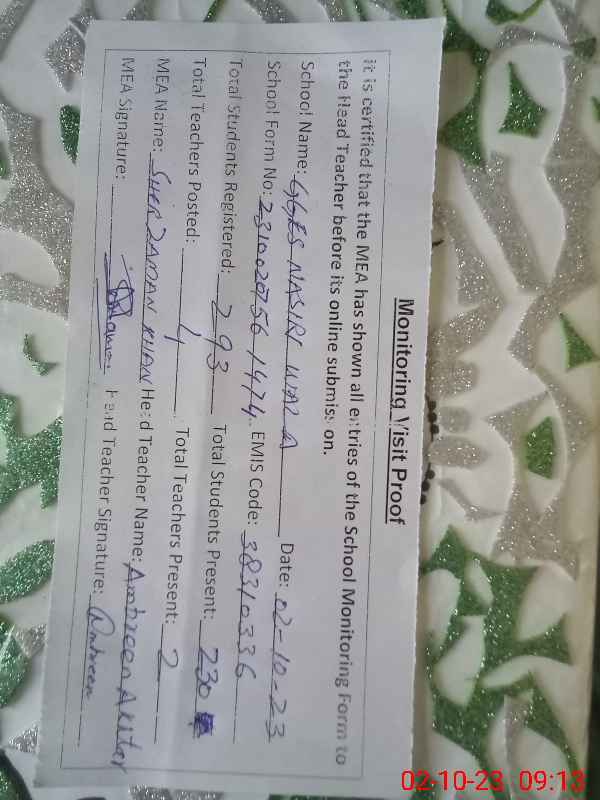 Monitoring Visit Proof
it is certified that the MEA has shown all entries of the School Monitoring Form to
the Head Teacher before its online submission.
School Name: GGES NASIRI WALA Date: 02-10-23
School Form No: 2310020756 1474 EMIS Code: 38310336
Total Students Registered: 293 Total Students Present: 230
Total Teachers Posted: 4 Total Teachers Present: 2
MEA Name: SHER ZAMAN KHAN Head Teacher Name: Ambreen Akhter
MEA Signature: Head Teacher Signature: Ambreen
02-10-23 09:13